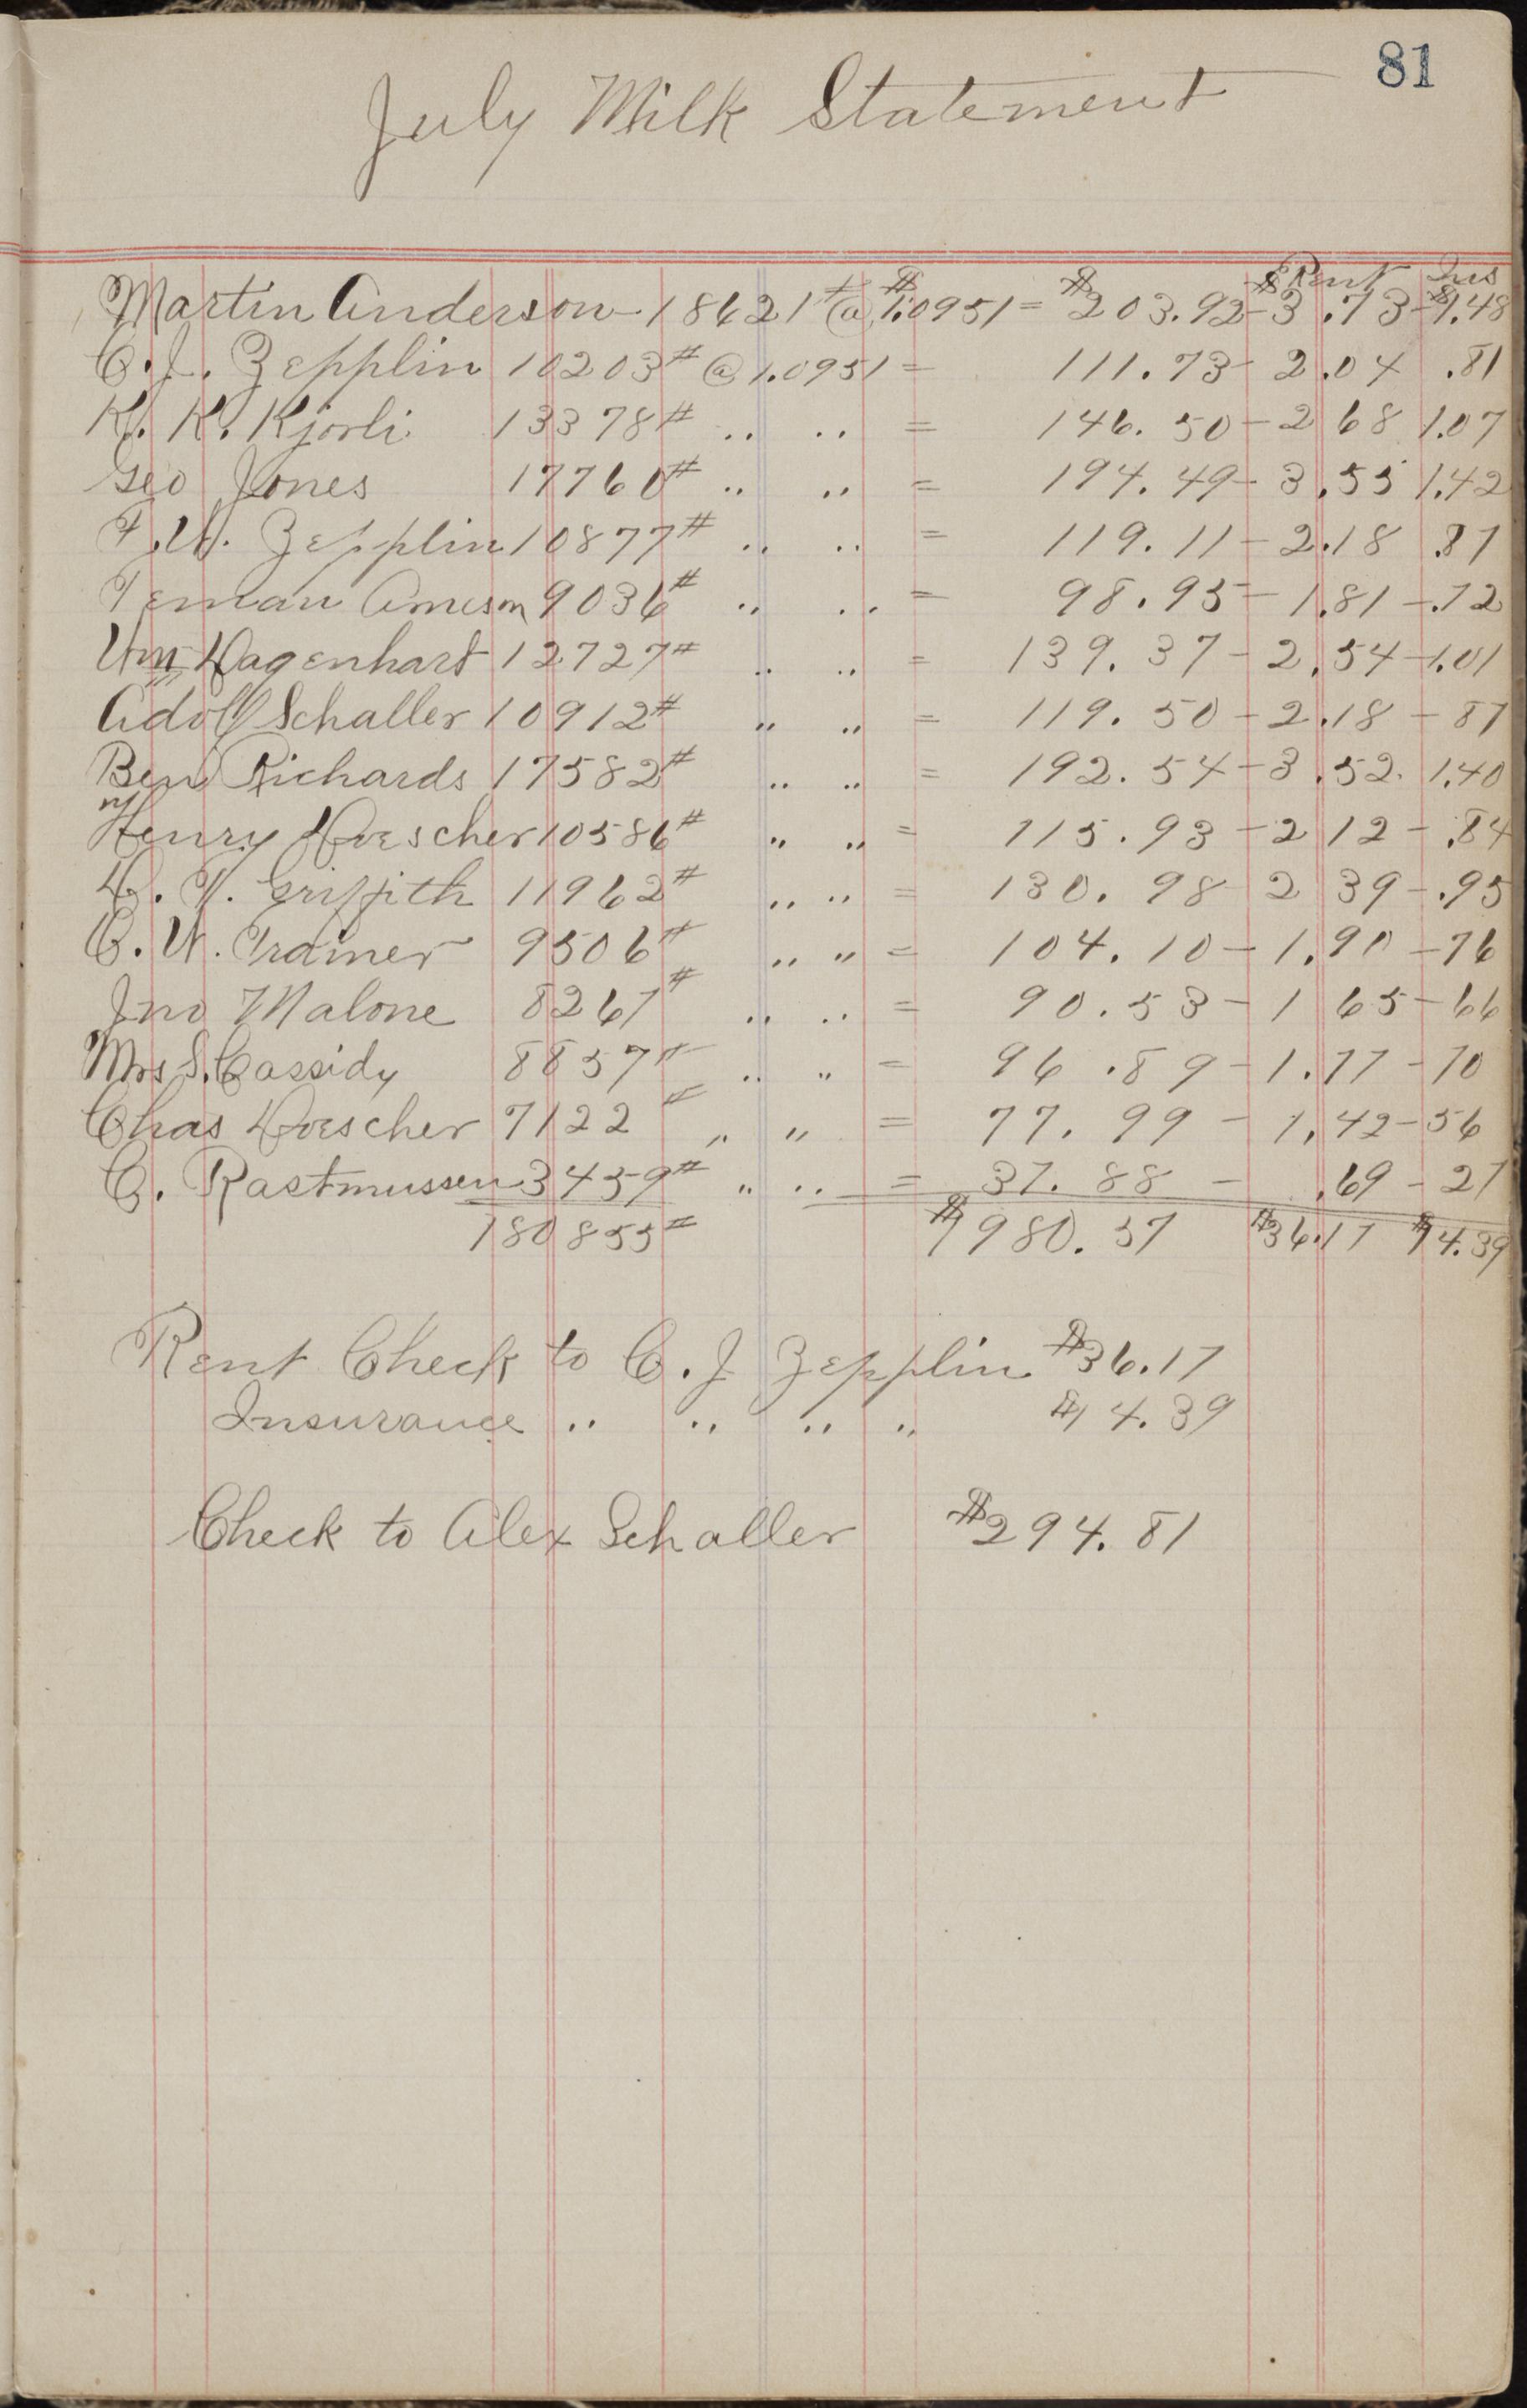 81
July Milk Statement
Rent Ins
Martin Anderson 18621# @ $1.0951 = $203.92 - $3.73 - $1.48
C. J. Zepplin 10203# @ 1.0951 = 111.73 - 2.04 .81
K. K. Kjorli 13378# .. .. = 146.50 - 2 68 1.07
Geo Jones 17760# .. .. = 194.49 - 3.55 1.42
F. W. Zepplin 10877# .. .. = 119.11 - 2.18 .87
Teman Arneson 9036# .. .. = 98.95 - 1.81 - .72
Wm Hagenhart 12727# .. .. = 139.37 - 2.54 - 1.01
Adolf Schaller 10912# .. .. = 119.50 - 2.18 - 87
Ben Richards 17582# .. .. = 192.54 - 3.52 1.40
Henry Voescher 10586# .. .. = 115.93 - 2 12 - .84
D. T. Griffith 11962# .. .. = 130.98 - 2 39 - .95
C. W. Trainer 9506# .. .. = 104.10 - 1.90 - 76
Jno Malone 8267# .. .. = 90.53 - 1 65 - 66
Mrs S. Cassidy 8857# .. .. = 96.89 - 1.77 - 70
Chas Voescher 7122# .. .. = 77.99 - 1.42 - 56
C. Rastmussen 3459# .. .. = 37.88 - .69 - 27
180855# $1980.57 $36.17 $14.39
Rent Check to C. J Zepplin $36.17
Insurance .. .. .. .. $14.39
Check to Alex Schaller $294.81